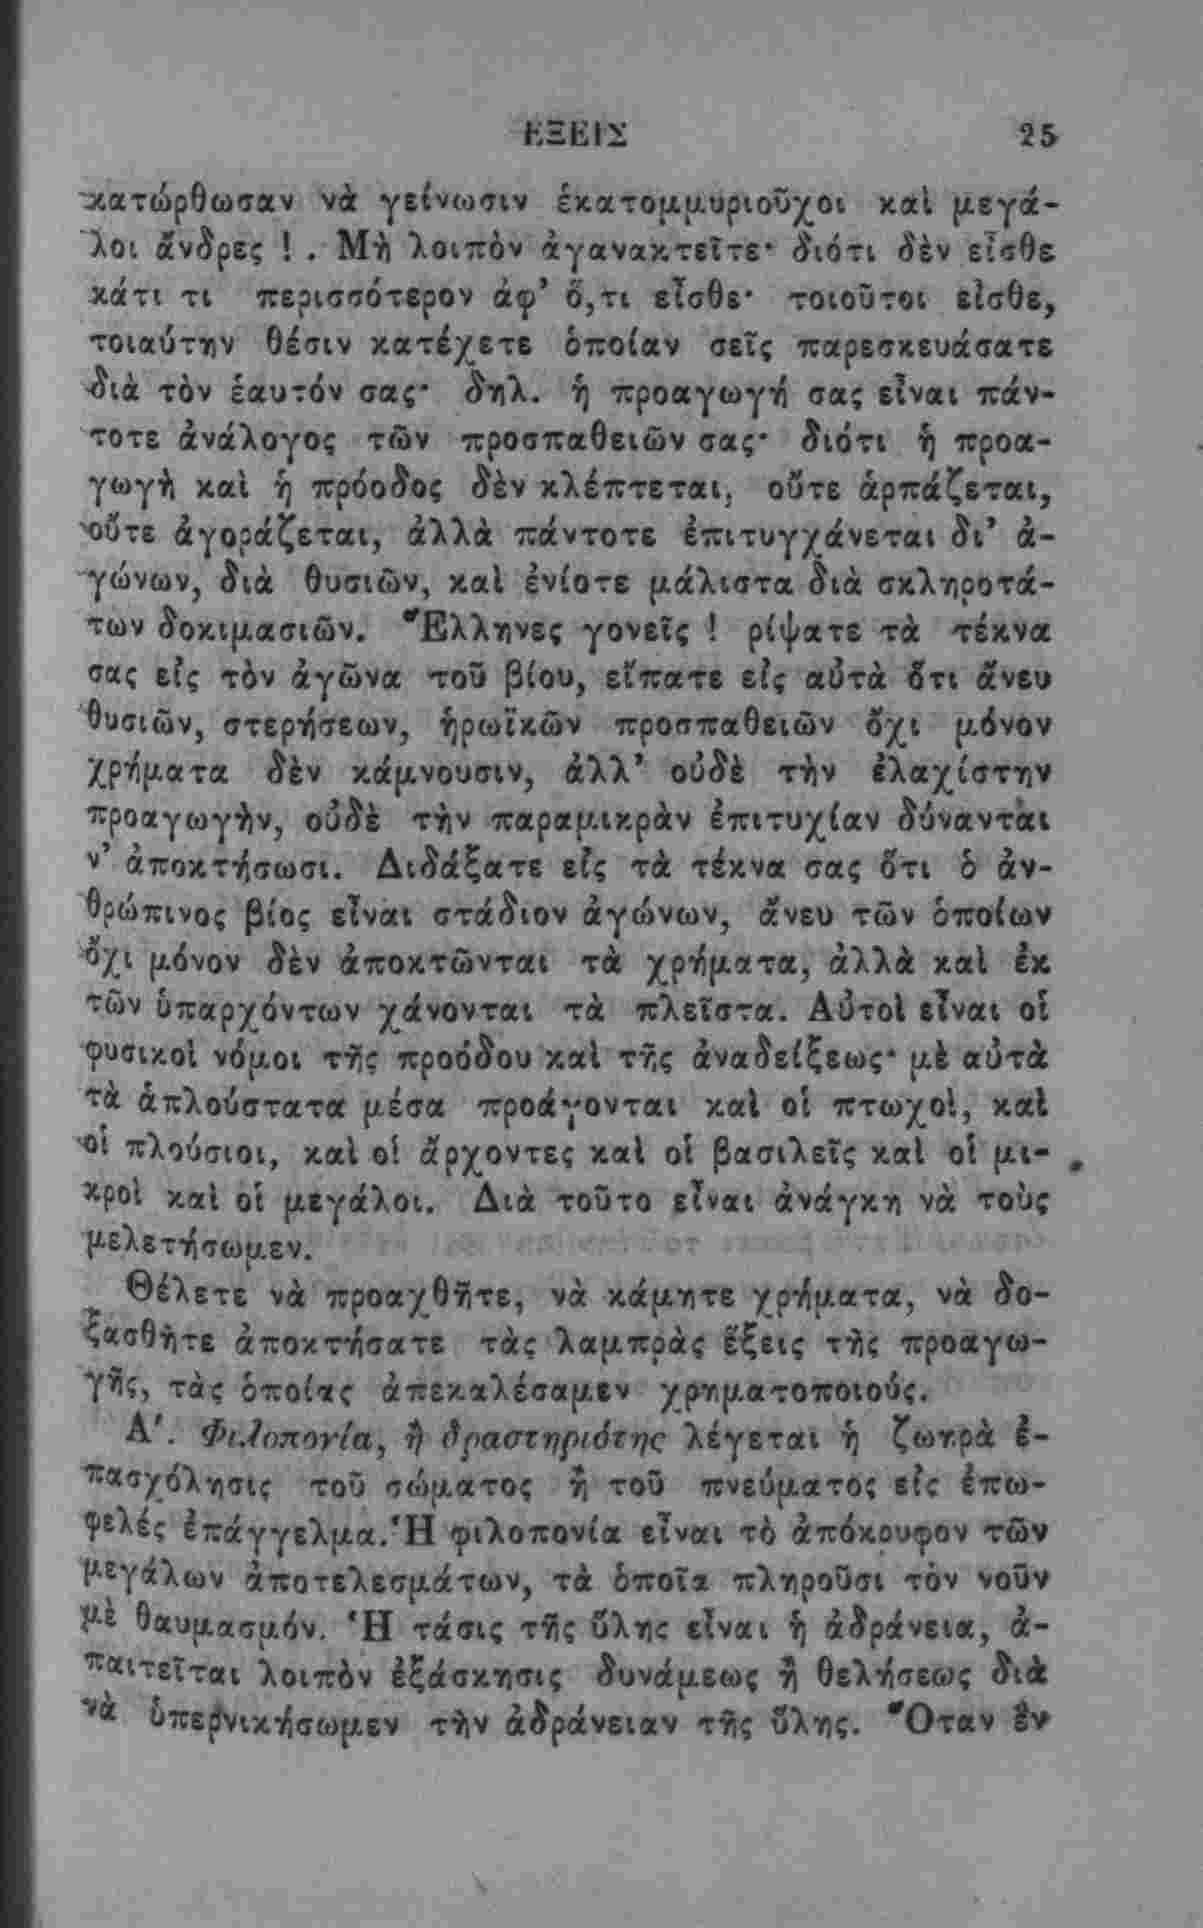 ΕΞΕΙΣ 25
κατώρθωσαν νὰ γείνωσιν ἑκατομμυριοῦχοι καὶ μεγά-
λοι ἄνδρες ! . Μὴ λοιπὸν ἀγανακτεῖτε· διότι δὲν εἶσθε
κάτι τι περισσότερον ἀφ’ ὅ,τι εἶσθε· τοιοῦτοι εἶσθε,
τοιαύτην θέσιν κατέχετε ὁποίαν σεῖς παρεσκευάσατε
διὰ τὸν ἑαυτόν σας· δηλ. ἡ προαγωγή σας εἶναι πάν-
τοτε ἀνάλογος τῶν προσπαθειῶν σας· διότι ἡ προα-
γωγὴ καὶ ἡ πρόοδος δὲν κλέπτεται, οὔτε ἁρπάζεται,
οὔτε ἀγοράζεται, ἀλλὰ πάντοτε ἐπιτυγχάνεται δι’ ἀ-
γώνων, διὰ θυσιῶν, καὶ ἐνίοτε μάλιστα διὰ σκληροτά-
των δοκιμασιῶν. Ἕλληνες γονεῖς ! ρίψατε τὰ τέκνα
σας εἰς τὸν ἀγῶνα τοῦ βίου, εἴπατε εἰς αὐτὰ ὅτι ἄνευ
θυσιῶν, στερήσεων, ἡρωϊκῶν προσπαθειῶν ὄχι μόνον
χρήματα δὲν κάμνουσιν, ἀλλ’ οὐδὲ τὴν ἐλαχίστην
προαγωγὴν, οὐδὲ τὴν παραμικρὰν ἐπιτυχίαν δύνανται
ν’ ἀποκτήσωσι. Διδάξατε εἰς τὰ τέκνα σας ὅτι ὁ ἀν-
θρώπινος βίος εἶναι στάδιον ἀγώνων, ἄνευ τῶν ὁποίων
ὄχι μόνον δὲν ἀποκτῶνται τὰ χρήματα, ἀλλὰ καὶ ἐκ
τῶν ὑπαρχόντων χάνονται τὰ πλεῖστα. Αὐτοὶ εἶναι οἱ
φυσικοὶ νόμοι τῆς προόδου καὶ τῆς ἀναδείξεως· μὲ αὐτὰ
τὰ ἁπλούστατα μέσα προάγονται καὶ οἱ πτωχοὶ, καὶ
οἱ πλούσιοι, καὶ οἱ ἄρχοντες καὶ οἱ βασιλεῖς καὶ οἱ μι-
κροὶ καὶ οἱ μεγάλοι. Διὰ τοῦτο εἶναι ἀνάγκη νὰ τοὺς
μελετήσωμεν.
Θέλετε νὰ προαχθῆτε, νὰ κάμητε χρήματα, νὰ δο-
ξασθῆτε ἀποκτήσατε τὰς λαμπρὰς ἕξεις τῆς προαγω-
γῆς, τὰς ὁποίας ἀπεκαλέσαμεν χρηματοποιούς.
Α′. Φιλοπονία, ἢ δραστηριότης λέγεται ἡ ζωηρὰ ἐ-
πασχόλησις τοῦ σώματος ἢ τοῦ πνεύματος εἰς ἐπω-
φελές ἐπάγγελμα. Ἡ φιλοπονία εἶναι τὸ ἀπόκρυφον τῶν
μεγάλων ἀποτελεσμάτων, τὰ ὁποῖα πληροῦσι τὸν νοῦν
μὲ θαυμασμόν. Ἡ τάσις τῆς ὕλης εἶναι ἡ ἀδράνεια, ἀ-
παιτεῖται λοιπὸν ἐξάσκησις δυνάμεως ἢ θελήσεως διὰ
νὰ ὑπερνικήσωμεν τὴν ἀδράνειαν τῆς ὕλης. Ὅταν ἓν